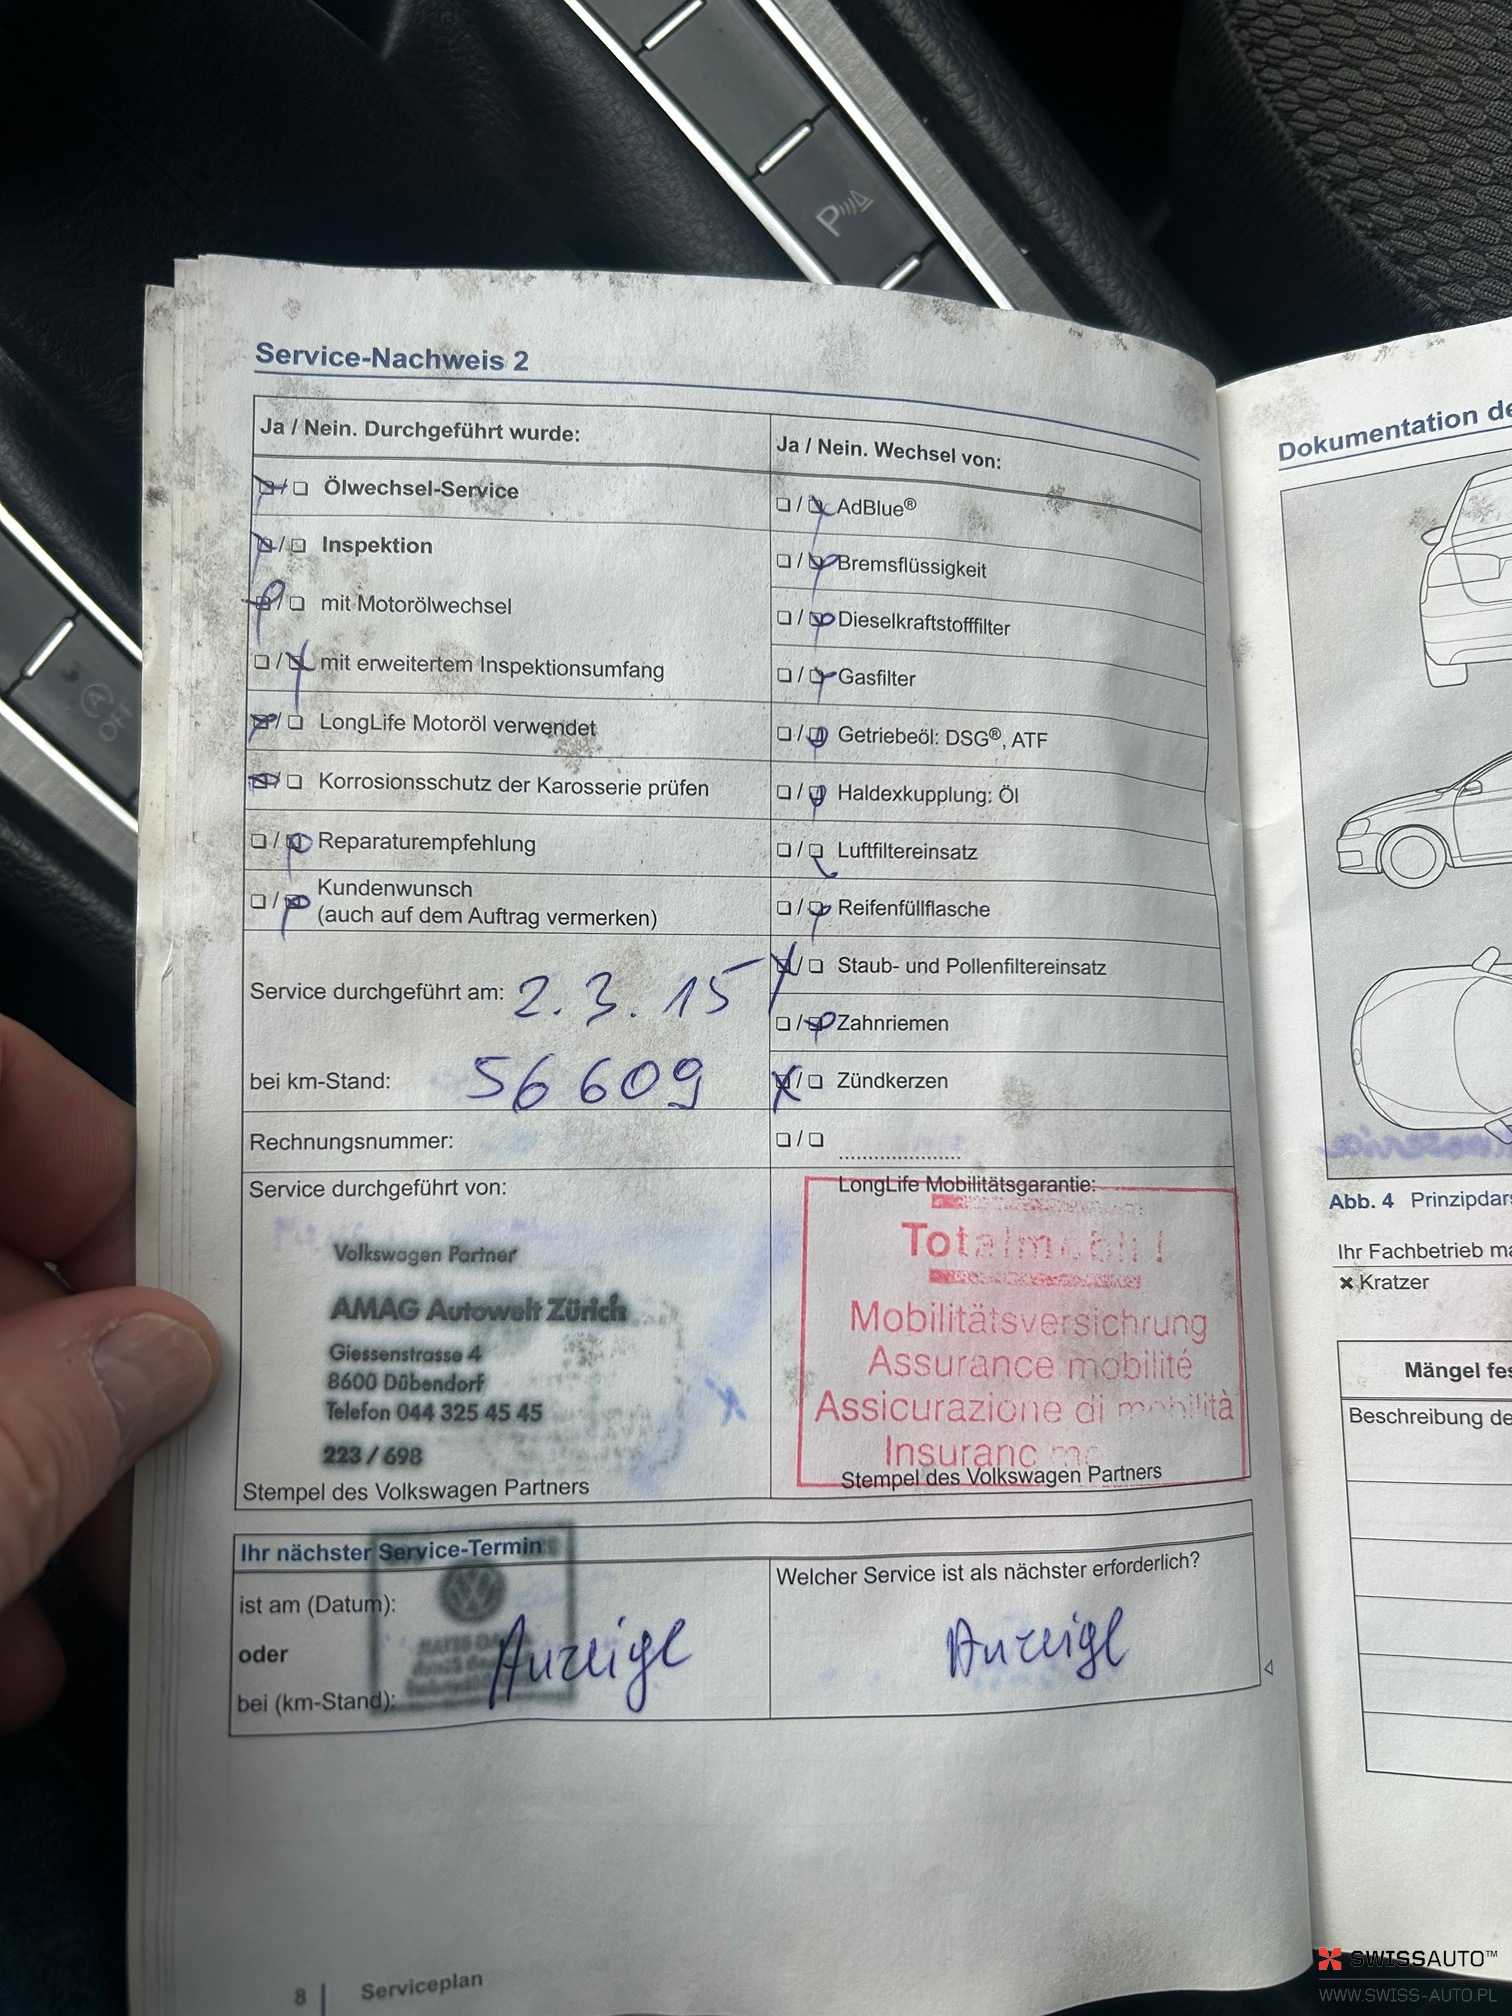 P
OFF
Service-Nachweis 2
Ja / Nein. Durchgeführt wurde:
Ölwechsel-Service
Inspektion
mit Motorölwechsel
mit erweitertem Inspektionsumfang
LongLife Motoröl verwendet
Korrosionsschutz der Karosserie prüfen
Reparaturempfehlung
Kundenwunsch
(auch auf dem Auftrag vermerken)
Service durchgeführt am: 2.3.15
bei km-Stand: 56 609
Rechnungsnummer:
Service durchgeführt von:
Volkswagen Partner
AMAG Autowelt Zürich
Giessenstrasse 4
8600 Dübendorf
Telefon 044 325 45 45
223 / 698
Stempel des Volkswagen Partners
Ja / Nein. Wechsel von:
AdBlue®
Bremsflüssigkeit
Dieselkraftstofffilter
Gasfilter
Getriebeöl: DSG®, ATF
Haldexkupplung: Öl
Luftfiltereinsatz
Reifenfüllflasche
Staub- und Pollenfiltereinsatz
Zahnriemen
Zündkerzen
LongLife Mobilitätsgarantie:
Totalmobil!
Mobilitätsversichrung
Assurance mobilité
Assicurazione di mobilità
Stempel des Volkswagen Partners
Ihr nächster Service-Termin
ist am (Datum):
oder
bei (km-Stand):
Anzeige
Welcher Service ist als nächster erforderlich?
Anzeige
8 | Serviceplan
Dokumentation de
Abb. 4 Prinzipdar
Ihr Fachbetrieb ma
Kratzer
Mängel fes
Beschreibung de
SWISSAUTO™
WWW.SWISS-AUTO.PL